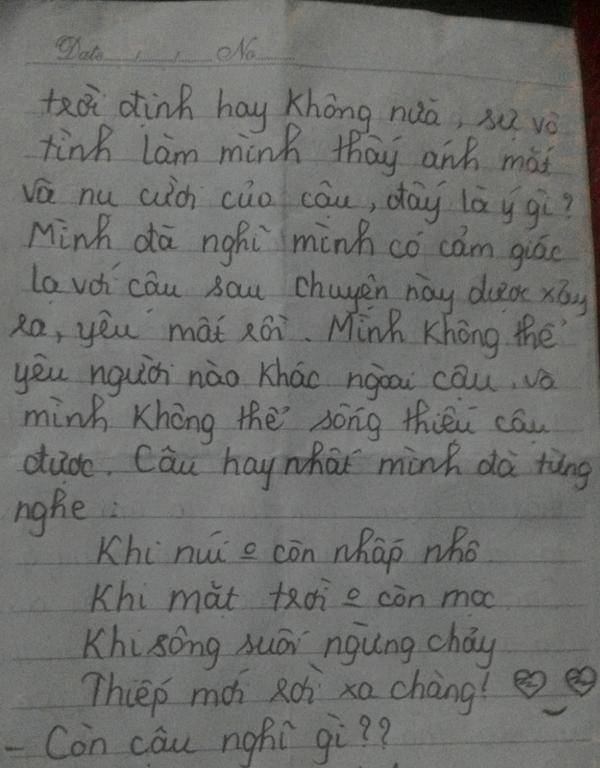 Date / / No
trời định hay không nữa, sự vô
tình làm mình thấy ánh mắt
và nụ cười của cậu, đấy là ý gì?
Mình đã nghĩ mình có cảm giác
lạ với cậu sau chuyện này được xảy
ra, yêu mất rồi. Mình không thể
yêu người nào khác ngoài cậu và
mình không thể sống thiếu cậu
được. Câu hay nhất mình đã từng
nghe :
Khi núi o còn nhấp nhô
Khi mặt trời o còn mọc
Khi sông suối ngừng chảy
Thiếp mới rời xa chàng!
- Còn cậu nghĩ gì??